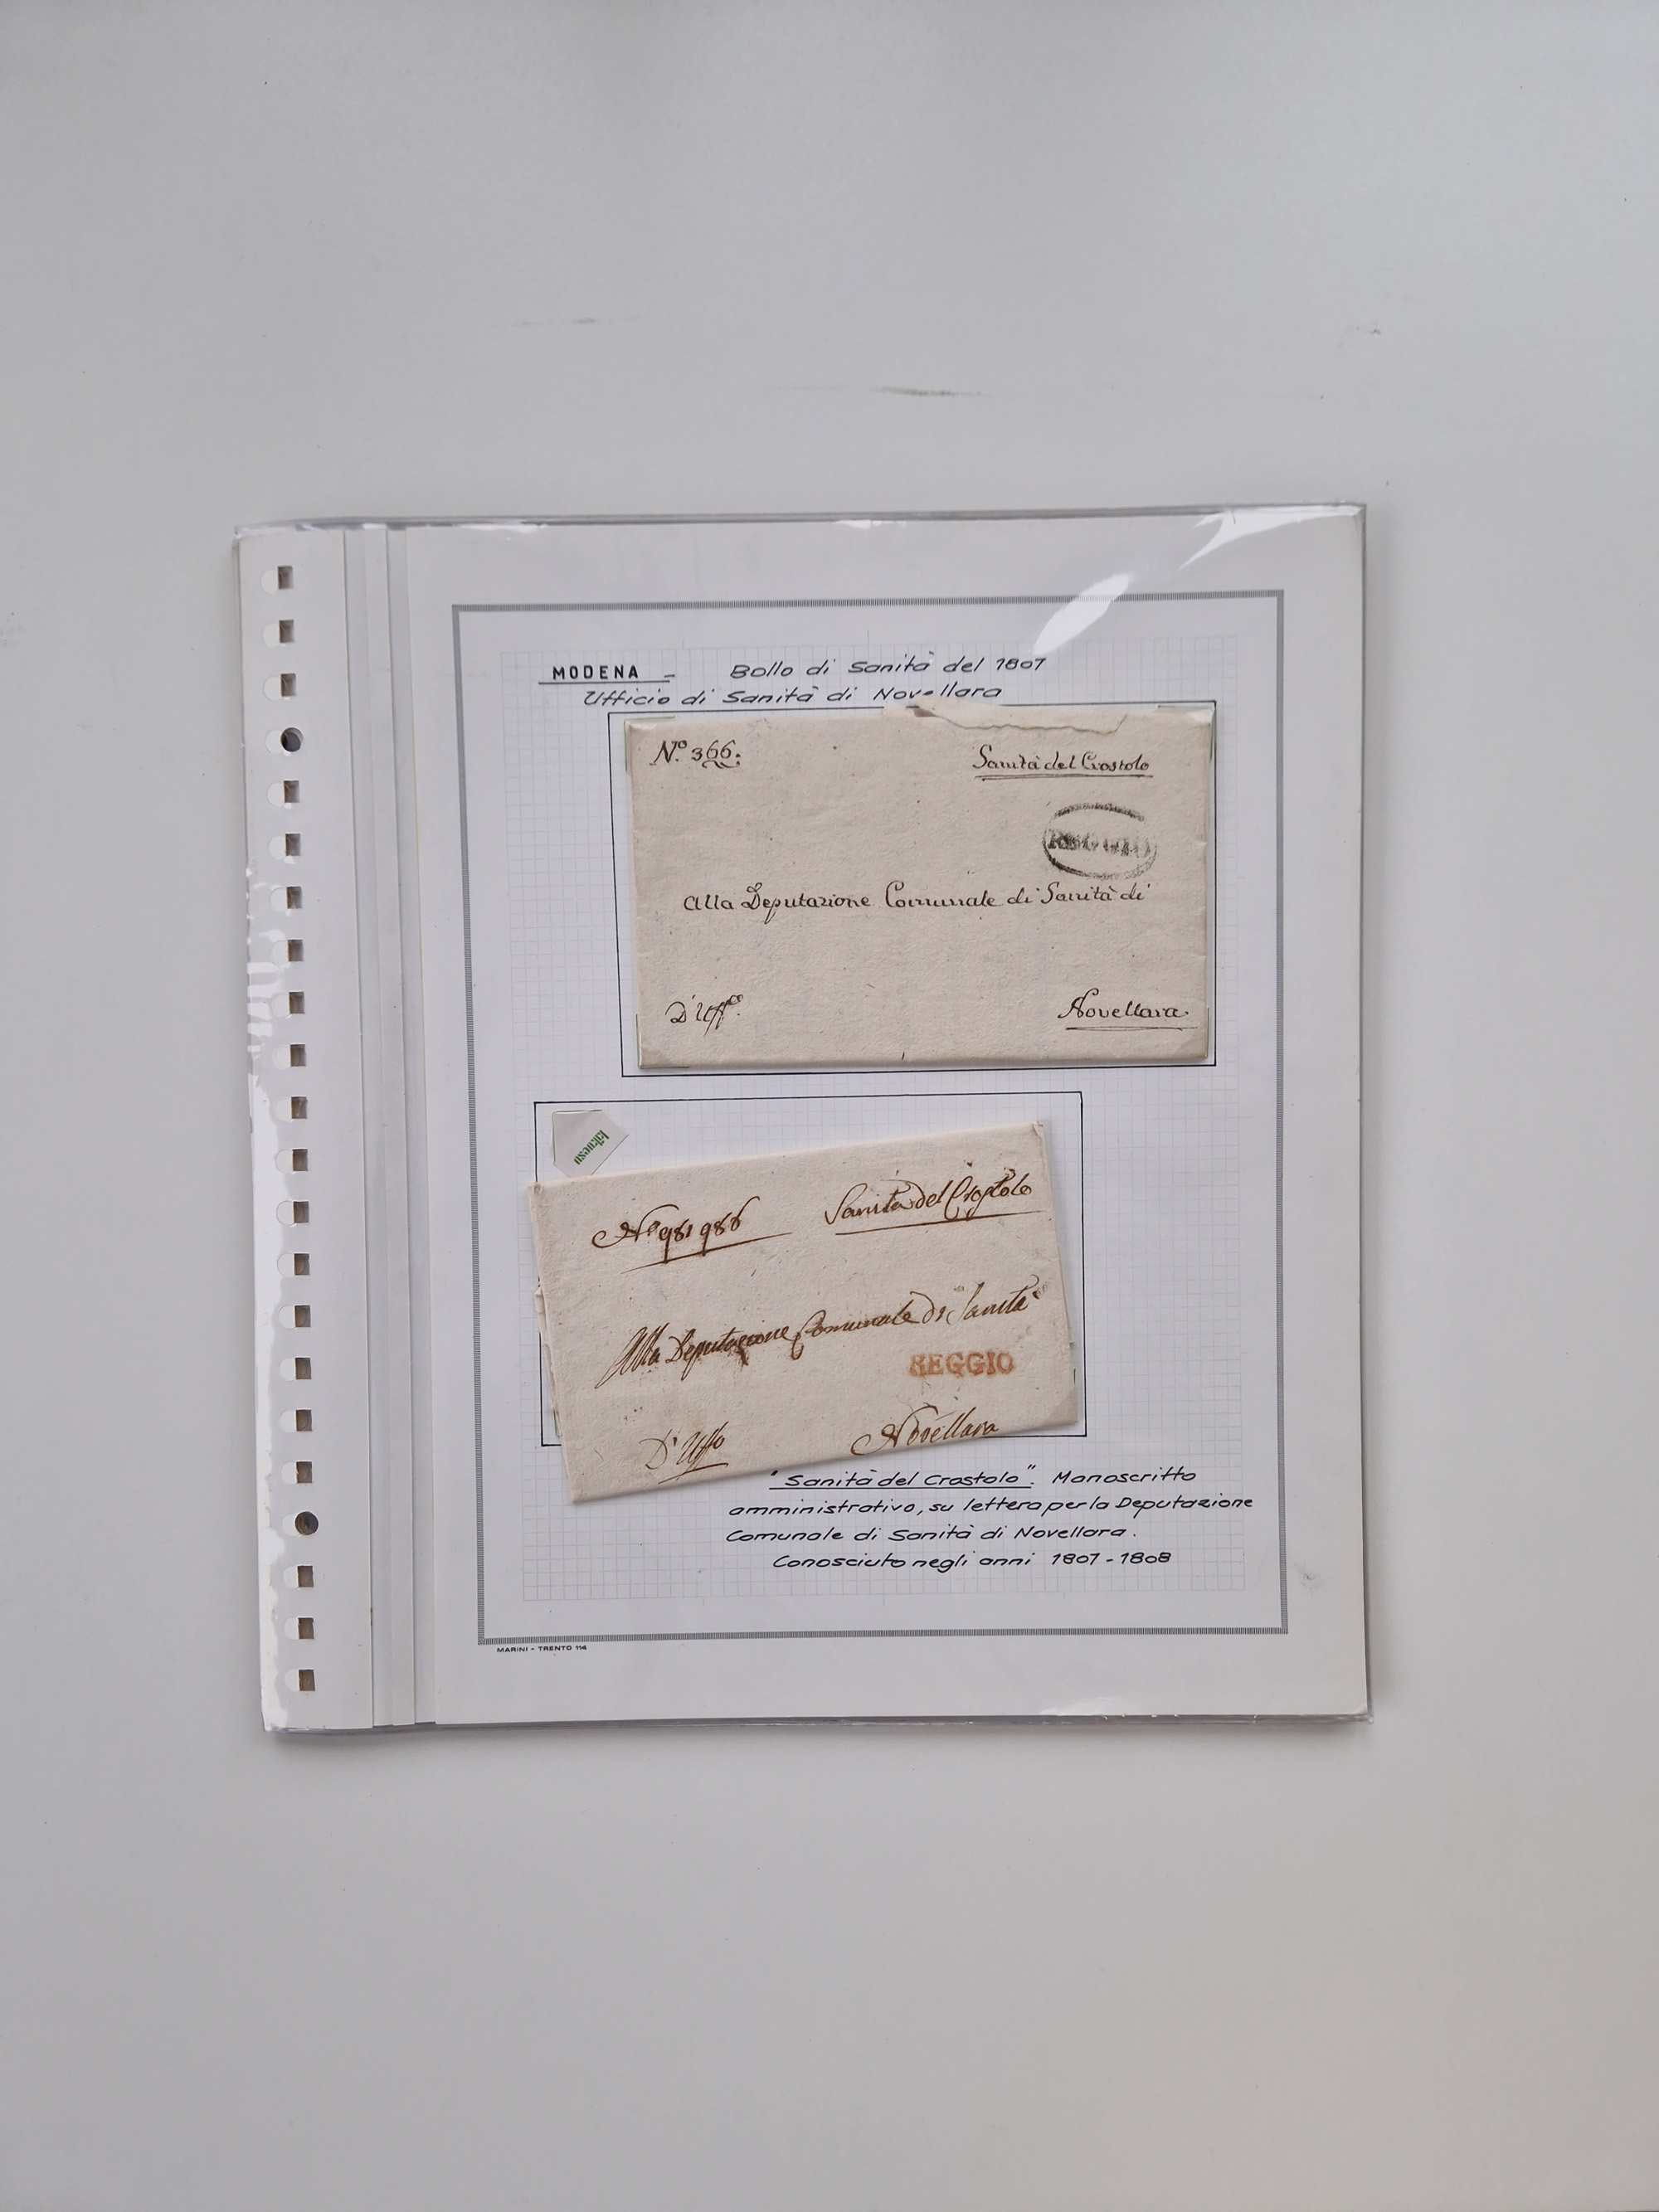 MODENA - Bollo di Sanità del 1807
Ufficio di Sanità di Novellara
Nº 366.
Sanità del Crostolo
REGGIO
Alla Deputazione Comunale di Sanità di
D'Uffco.
Novellara.
Nº 981 986
Sanità del Crostolo
Alla Deputazione Comunale di Sanità
REGGIO
D'Uffo
Novellara
"Sanità del Crostolo". Manoscritto
amministrativo, su lettera per la Deputazione
Comunale di Sanità di Novellara.
Conosciuto negli anni 1807-1808
MARINI - TRENTO 114